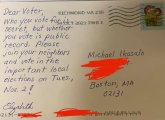 Dear Voter,
Who you vote for is
secret, but whether
you vote is public
record. Please
join your neighbors
and vote in the
important local
elections on Tues,
Nov. 2!
Elizabeth
RICHMOND VA 230
Michael Ikasala
Boston, MA
02131